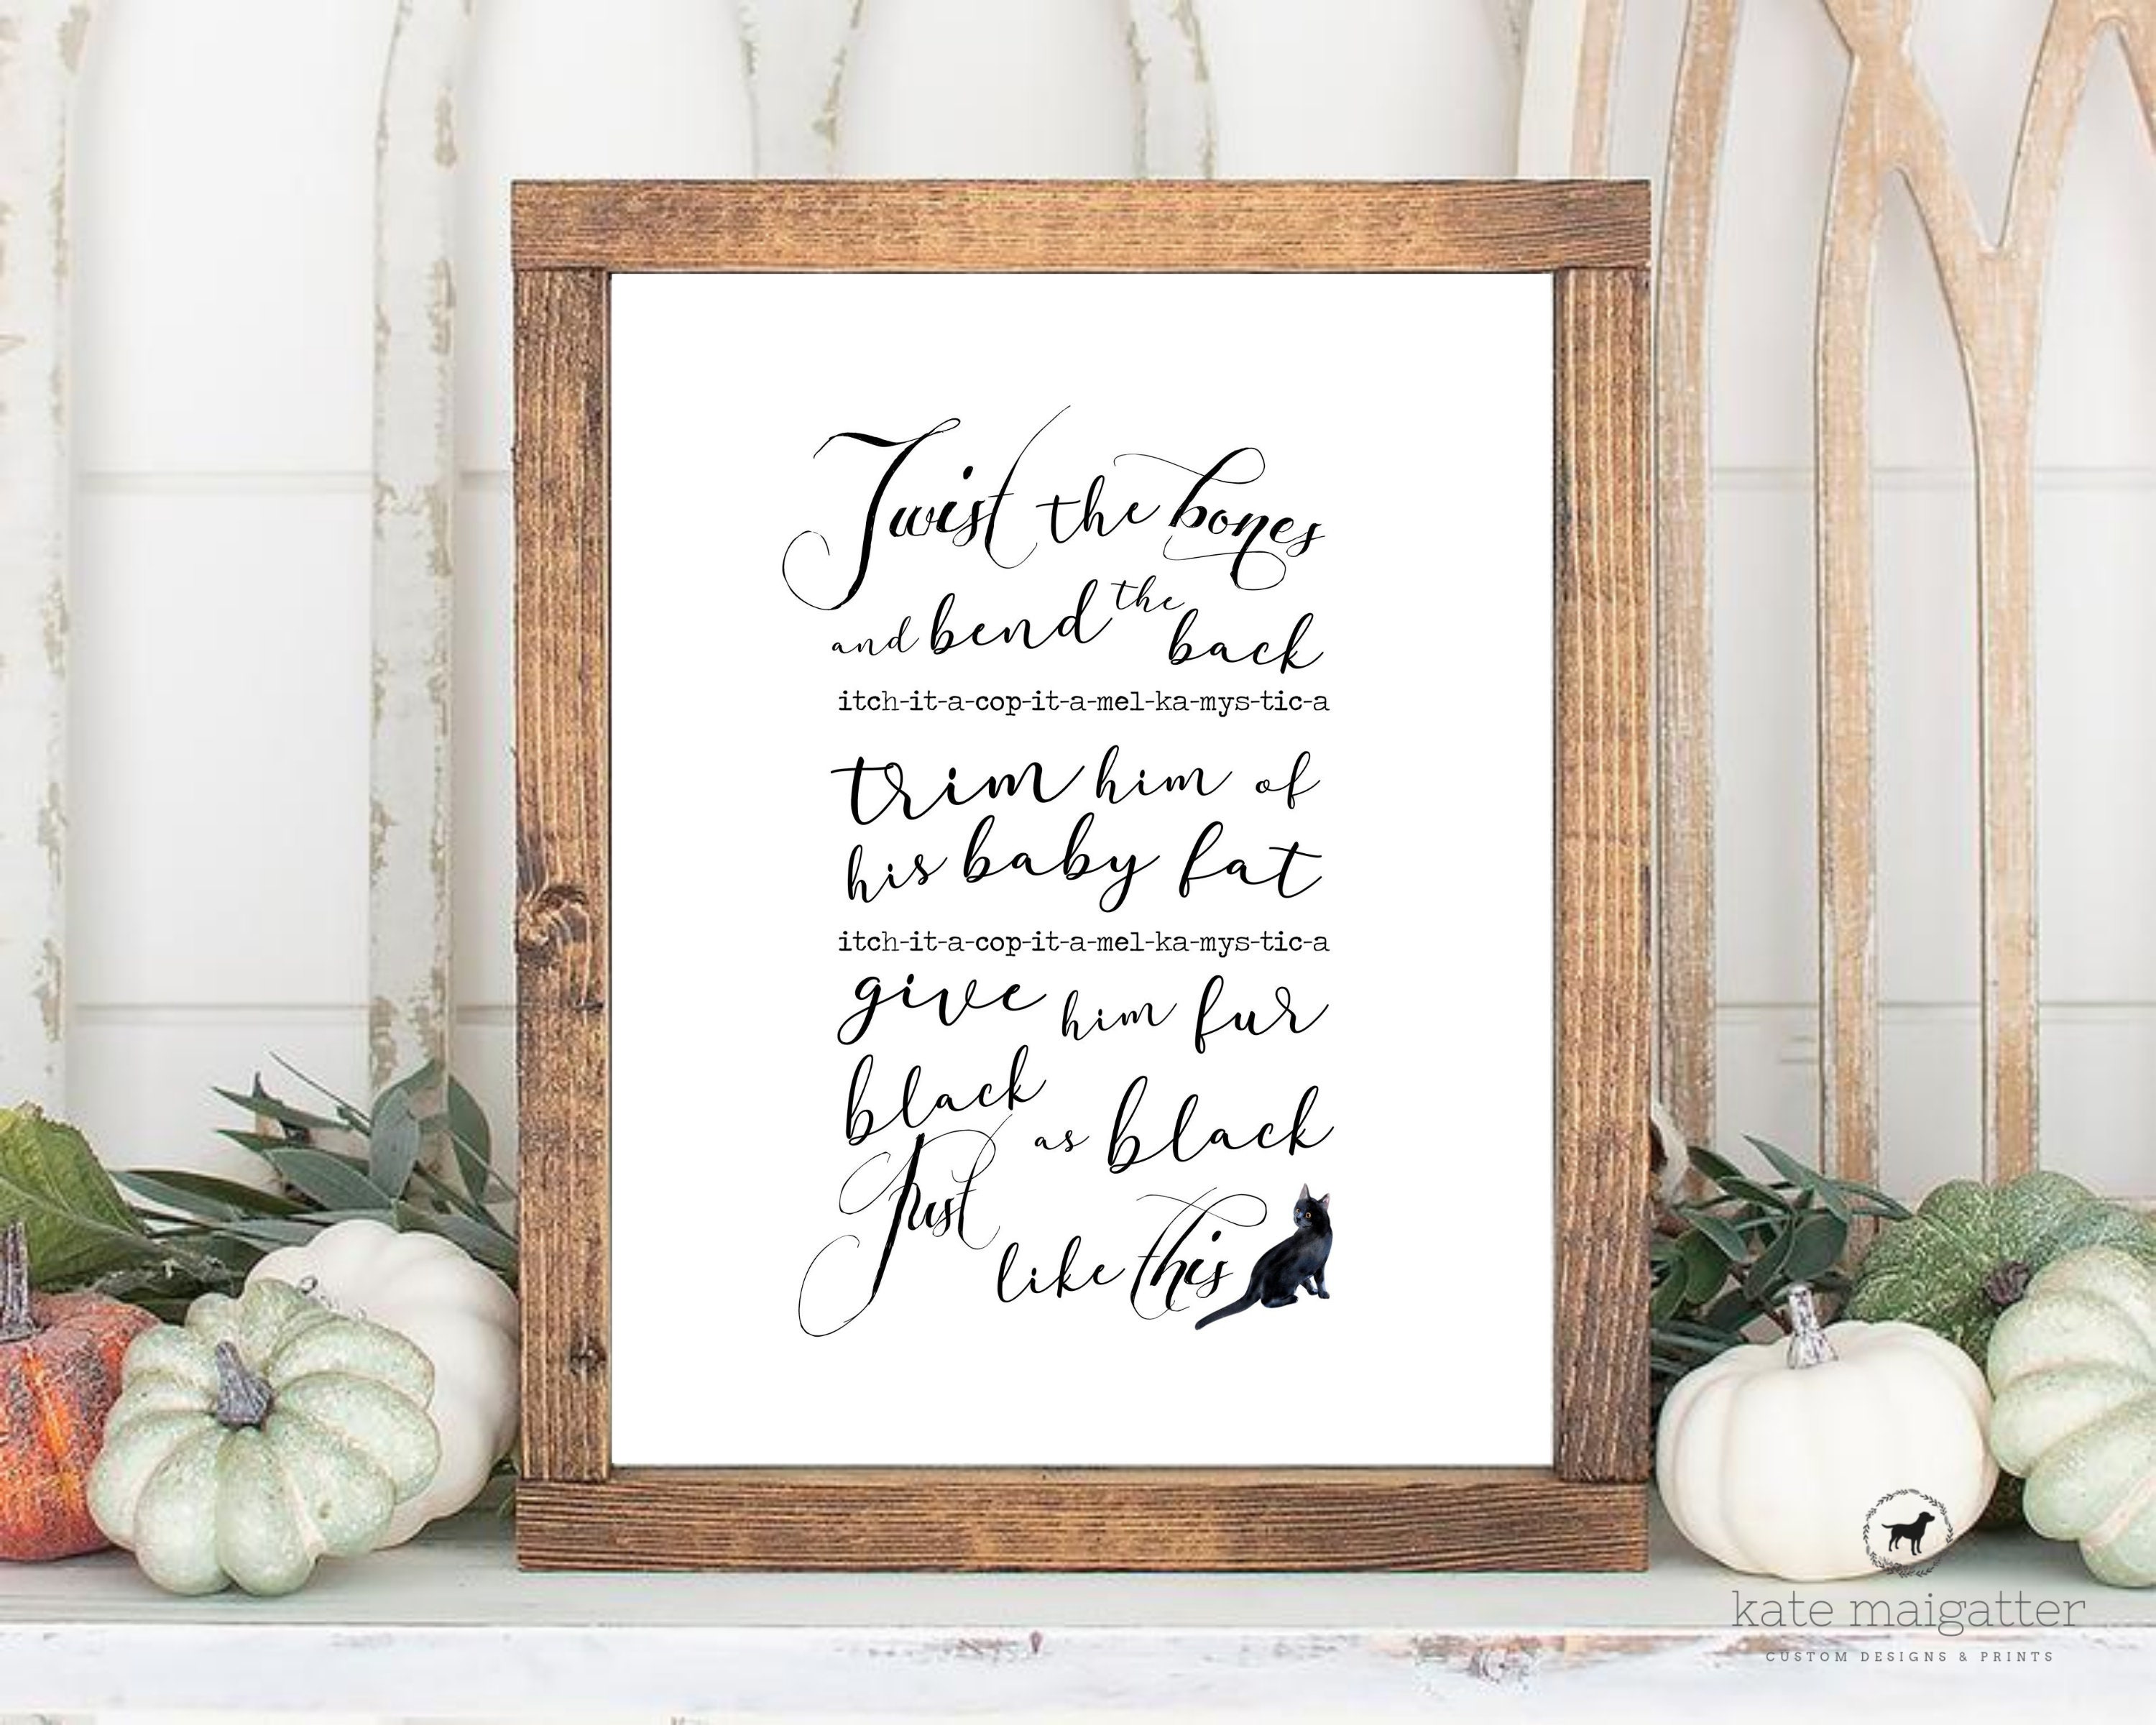 Twist the bones
and bend the back
itch-it-a-cop-it-a-mel-ka-mys-tic-a
trim him of
his baby fat
itch-it-a-cop-it-a-mel-ka-mys-tic-a
give him fur
black as black
Just like this
kate maigatter
CUSTOM DESIGNS & PRINTS